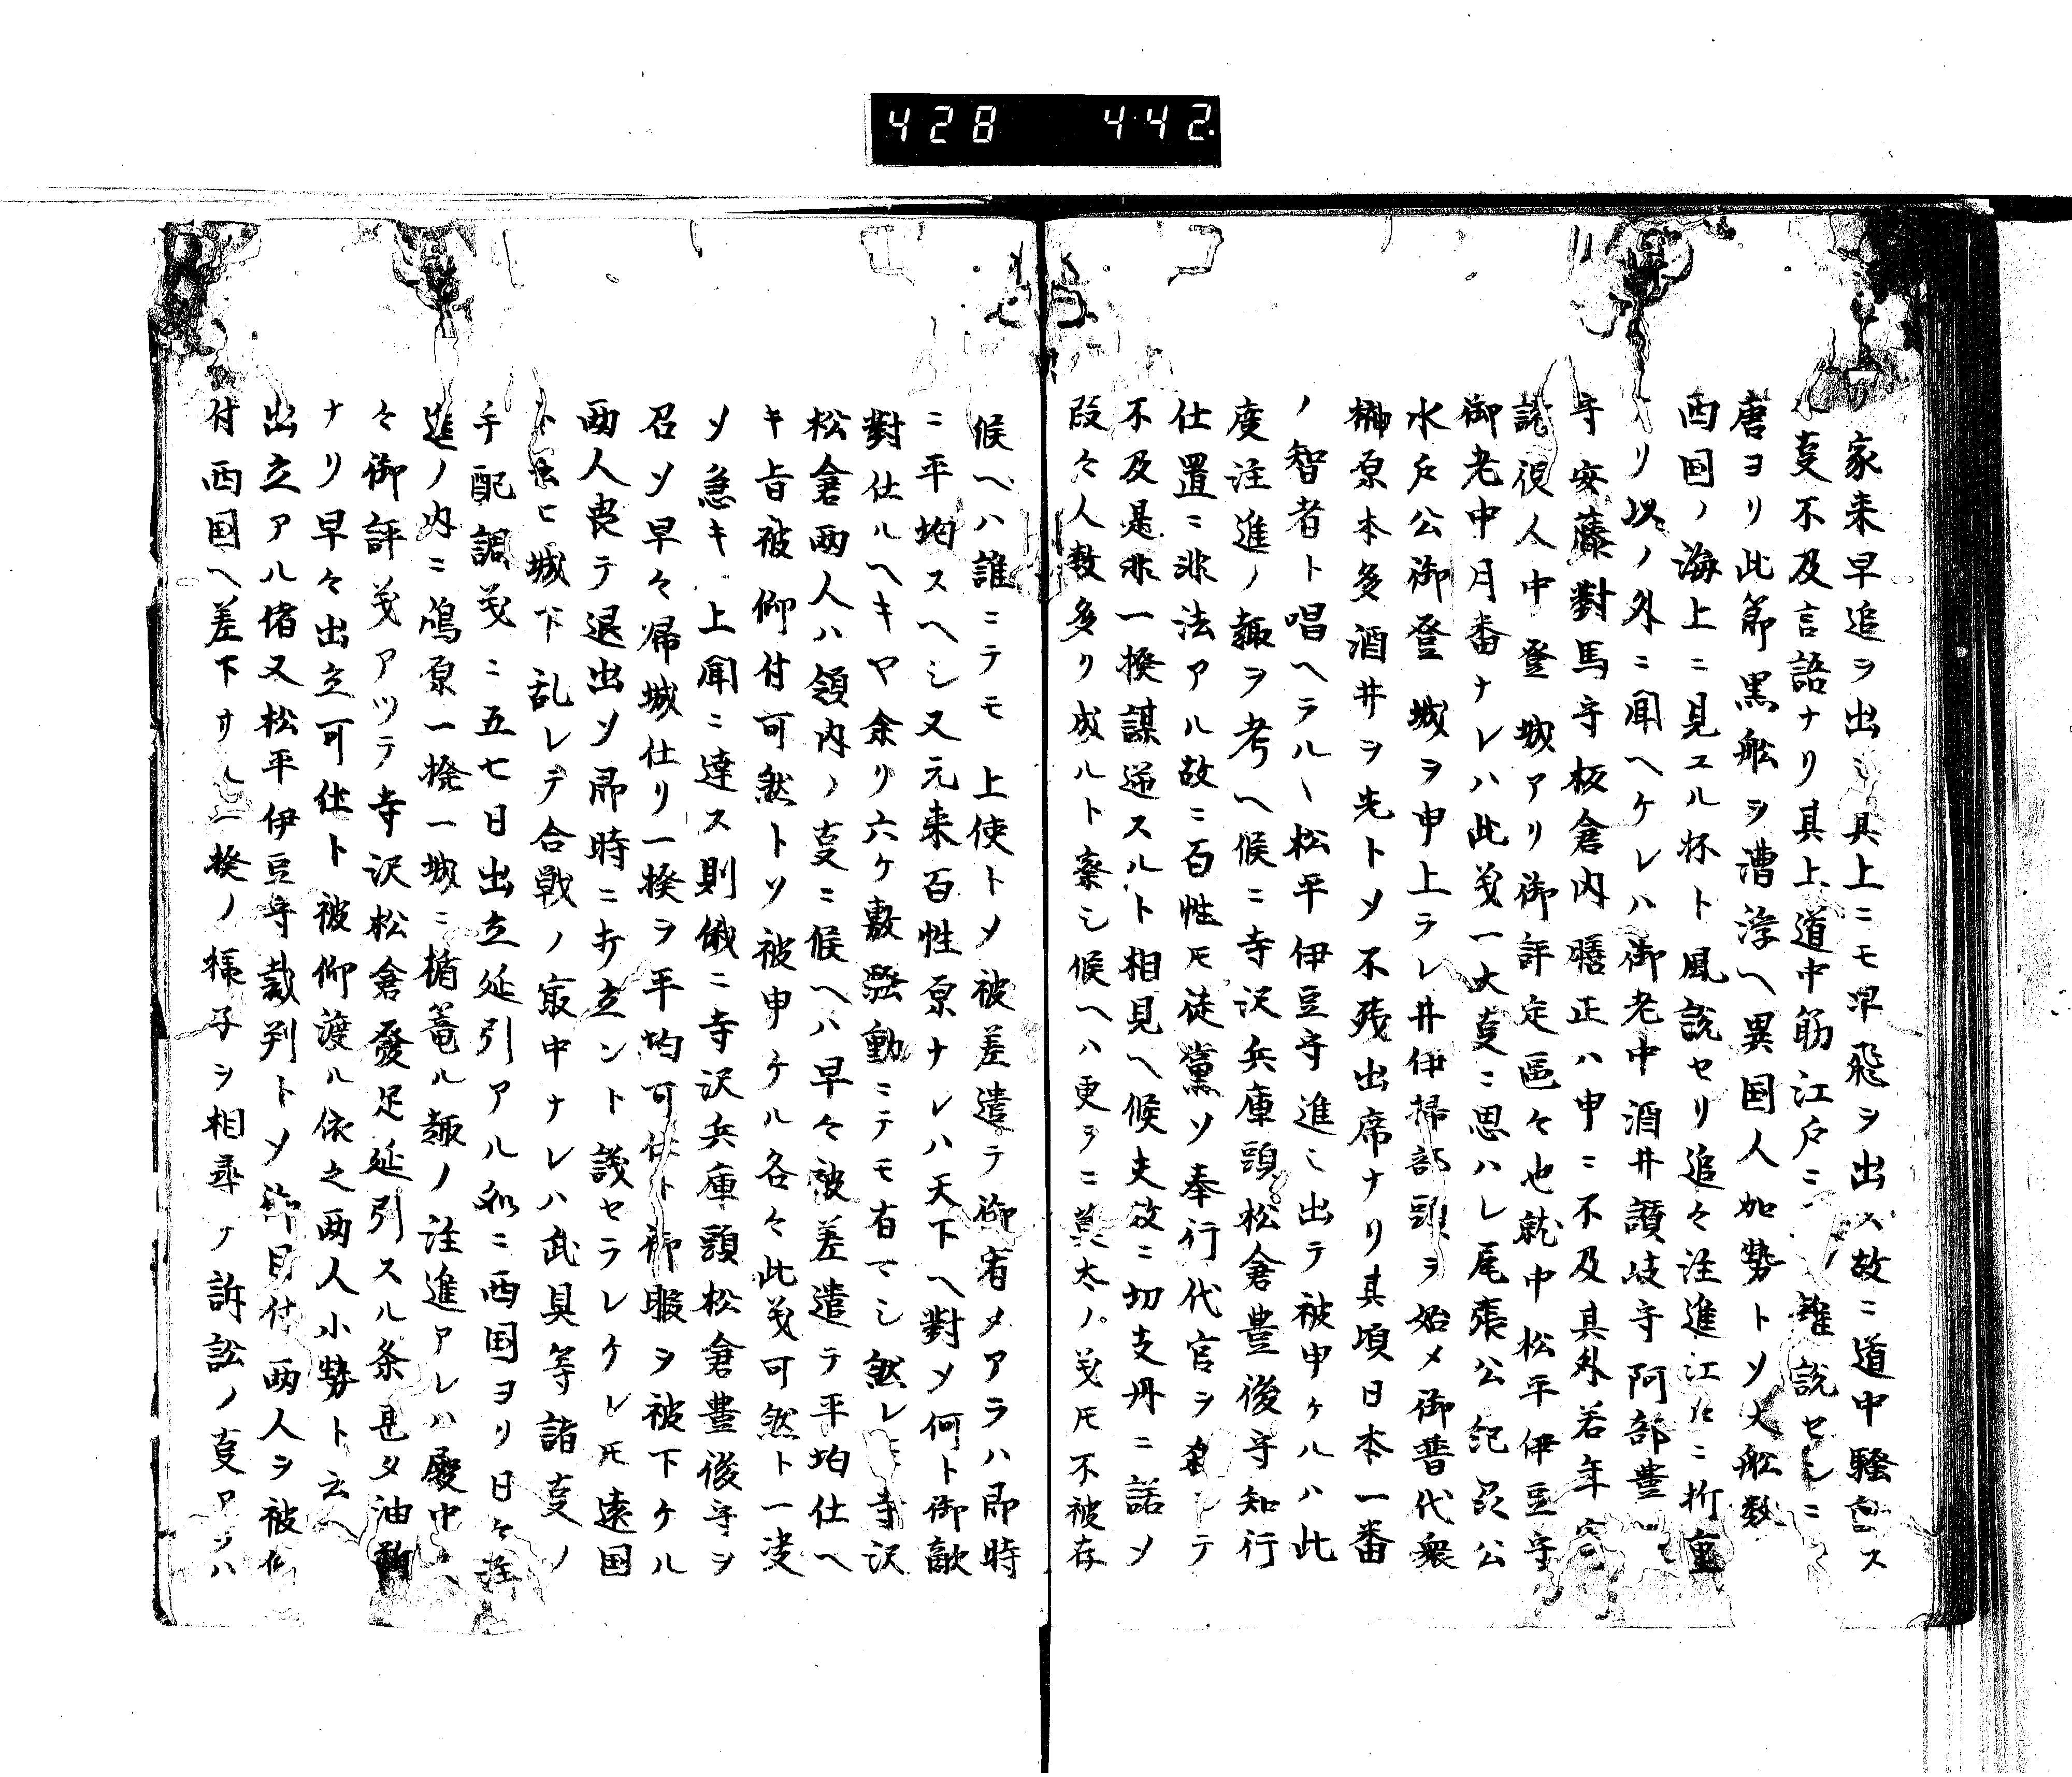 428 442
家来早追ヲ出シ其上ニモ早飛ヲ出ス故ニ道中騒言ス
ル㕝不及言語ナリ其上道中筋江戸ニ雑説セシニ
唐ヨリ此節黒舩ヲ漕浮ヘ異国人加勢トソ大舩数
西国ノ海上ニ見ユル抔ト風説セリ追々注進江府ニ折重
ナリ以ノ外ニ聞ヘケレハ御老中酒井讃岐守阿部豊
守安藤對馬守板倉内膳正ハ申ニ不及其外若年寄
諸役人中登城アリ御評定區々也就中松平伊豆守
御老中月番ナレハ此義一大㕝ニ思ハレ尾張公紀伊公
水戸公御登城ヲ申上ラレ井伊掃部頭ヲ始メ御普代衆
榊原本多酒井ヲ先トソ不残出席ナリ其頃日本一番
ノ智者ト唱ヘラルヽ松平伊豆守進ミ出テ被申ケルハ此
度注進ノ趣ヲ考ヘ候ニ寺沢兵庫頭松倉豊後守知行
仕置ニ非法アル故ニ百性モ徒黨ソ奉行代官ヲ殺シテ
不及是非一揆謀逆スルト相見ヘ候夫故ニ切支丹ニ話メ
段々人数多リ成ルト察シ候ヘハ更ヲニ莫太ノ義モ不被存
候ヘハ誰ニテモ 上使トメ被差遣テ御宥メアラハ即時
ニ平均スヘシ又元来百性原ナレハ天下ヘ對メ何ト御敵
對仕ルヘキヤ余リ六ケ敷騒動ニテモ有マシ然レハ寺沢
松倉両人ハ領内ノ㕝ニ候ヘハ早々被差遣テ平均仕ヘ
キ旨被仰付可然トソ被申ケル各々此義可然ト一決
ソ急キ上聞ニ達ス則俄ニ寺沢兵庫頭松倉豊後守ヲ
召ソ早々帰城仕リ一揆ヲ平均可仕ト御暇ヲ被下ケル
両人畏テ退出ソ即時ニ打立ント議セラレケレ𪜈遠国
ト云ヒ城下乱レテ合戦ノ最中ナレハ武具等諸㕝ノ
手配調義ニ五七日出立延引アル処ニ西国ヨリ日々注
進ノ内ニ嶋原一揆一城ニ楯篭ル趣ノ注進アレハ殿中
々御評義アツテ寺沢松倉發足延引スル条甚タ油断
ナリ早々出立可仕ト被仰渡ル依之両人小勢ト云ヘ
出立アル偖又松平伊豆守裁判トソ御目付両人ヲ被仰
付西国ヘ差下サル一揆ノ様子ヲ相尋ケ訴訟ノ㕝アラハ